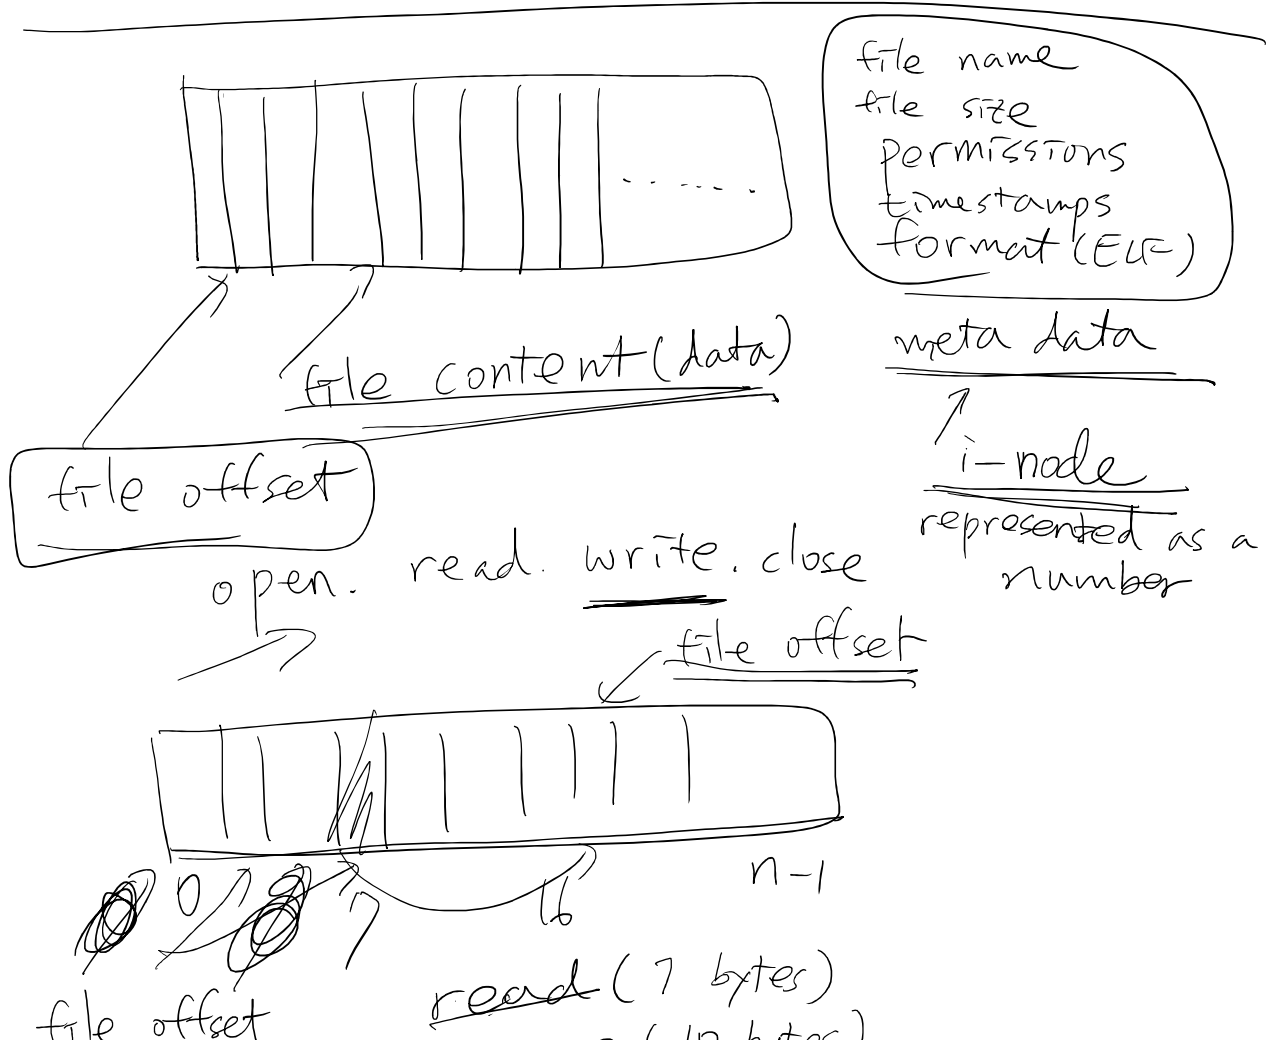 file name
file size
permissions
timestamps
format (ELF)
meta data
file content (data)
i-node
represented as a
number
file offset
open. read. write. close
file offset
0 7 16 n-1
file offset
read (7 bytes)